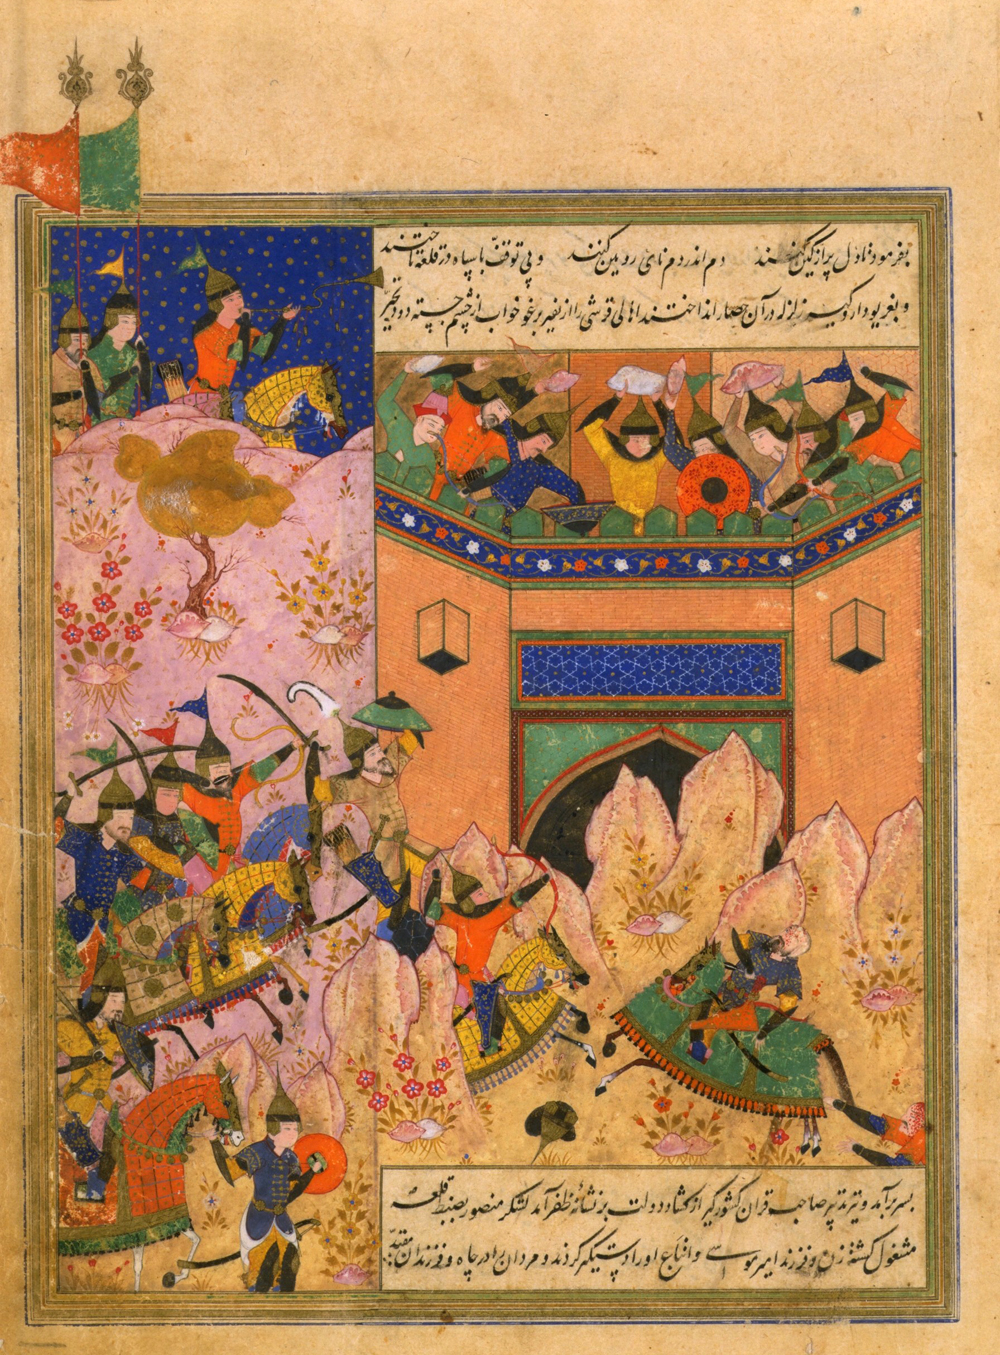 بفرمود تا دل پر از کین کنند دم اندر دم نای رویین کنند و بی توقف با سپاه در قلعه تاختند
و بغریو دار و کیر زلزله در آن حصار انداختند اهالی قرشی را از نفیر برغو خواب از چشم جسته دود تحیر
بسر برآمد و تیر تدبیر صاحب قران کشور کیر از کشاد دولت بر نشانهٔ ظفر آمد لشکر منصور بضبط قلعه
مشغول کشته زن و فرزند امیر موسی و اتباع او را دستیکر کردند و مردان را در چاه و فرزندان مقید